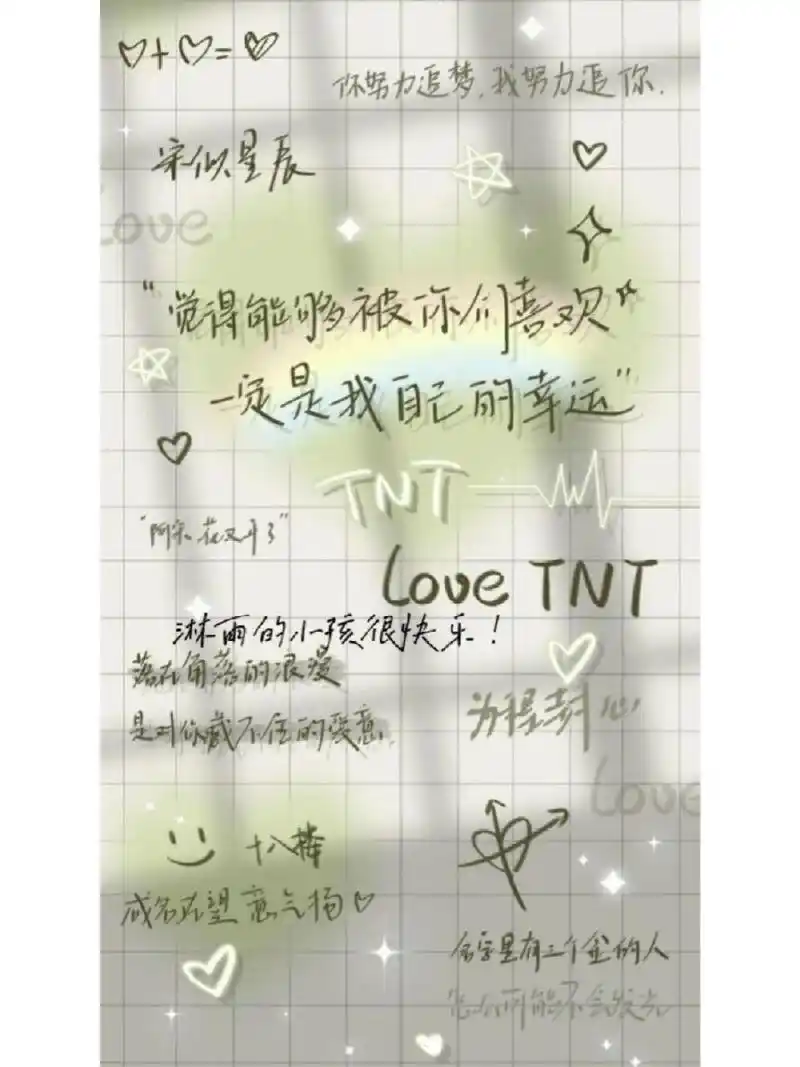 你努力追梦,我努力追你.
宋似星辰
Love
“觉得能够被你们喜欢
一定是我自己的幸运”
TNT
“阿宋,花又开了”
Love TNT
淋雨的小孩很快乐！
落在角落的浪漫
是对你藏不住的爱意.
为程封心
Love
十八楼
成名在望意气扬
名字里有三个金的人
怎么可能不会发光